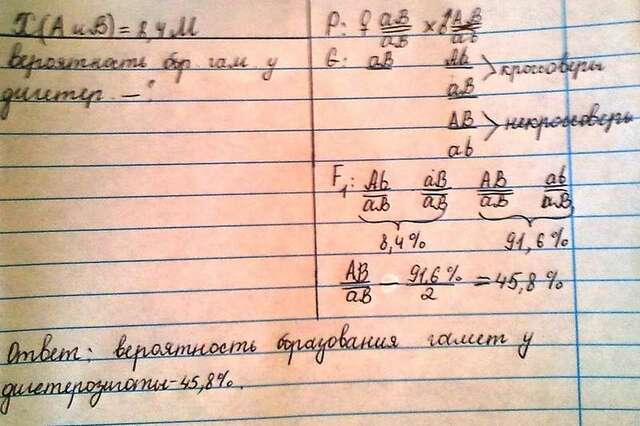 I(A и B) = 8,4 М
вероятность обр. гам. у
дигетер. — ?
P: ♀ aB/aB × ♂ AB/ab
G: aB Ab
aB
> кроссоверы
AB
ab
> некроссоверы
F1: Ab/aB aB/aB AB/aB ab/aB
8,4% 91,6%
AB/aB — 91,6%/2 = 45,8%
Ответ: вероятность образования гамет у
дигетерозиготы - 45,8%.